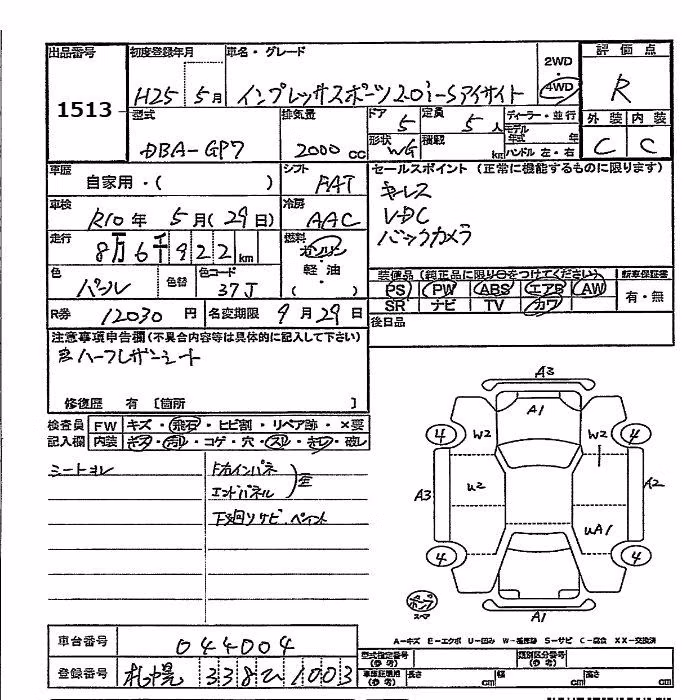 出品番号 初度登録年月 車名・グレード 2WD 4WD 評価点
1513 H25 5月 インプレッサスポーツ2.0i-Sアイサイト R
型式 排気量 ドア 5 定員 5人 ディーラー・並行 外装 内装
DBA-GP7 2000cc 形状 WG 積載 kg モデル年式 年 ハンドル 左・右 C C
車歴 シフト セールスポイント (正常に機能するものに限ります)
自家用・( ) FAT キーレス
車検 冷房 VDC
R10年 5月(29日) AAC バックカメラ
走行 燃料
8万6千922km ガソリン・軽油・( )
色 色替 色コード 装備品(純正品に限り○をつけてください) 新車保証書
パール 37J PS PW ABS エアB AW 有・無
SR ナビ TV カワ
R券 12030円 名変期限 9月29日 後日品
注意事項申告欄(不具合内容等は具体的に記入して下さい)
ハーフレザーシート
修復歴 有 〔箇所 〕
検査員 FW キズ・飛石・ヒビ割・リペア跡・×要
記入欄 内装 キズ・汚れ・コゲ・穴・スリ・キレ・破レ
シートヨレ
インパネ
エンドパネル
下廻りサビ.ペイント
A3
A1
4 W2 W2 4
A3 U2 A2
UA1
4 4
A1
A-キズ E-エクボ U-凹み W-補修跡 S-サビ C-腐食 XX-交換済
車台番号 044004 型式指定番号(参考) 類別区分番号(参考)
登録番号 札幌 338 ひ 1003 長さ cm 幅 cm 高さ cm